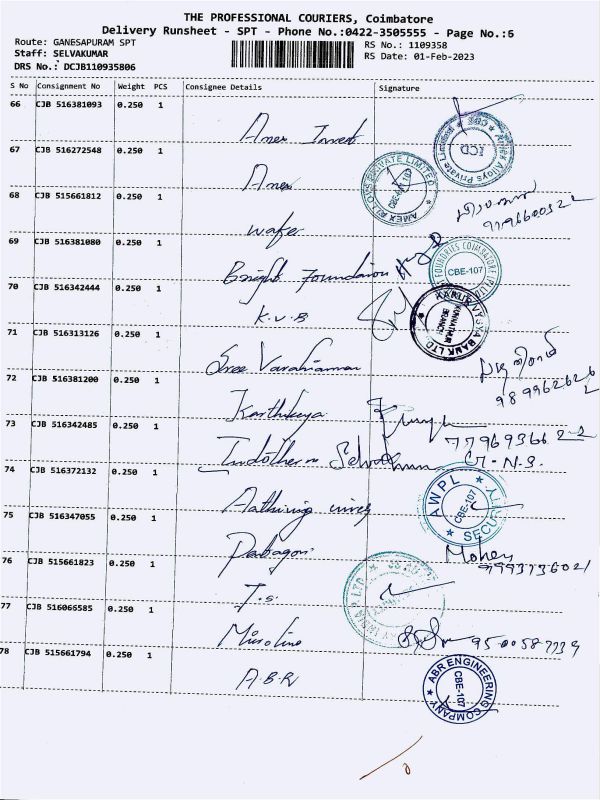 THE PROFESSIONAL COURIERS, Coimbatore
Delivery Runsheet - SPT - Phone No.:0422-3505555 - Page No.:6
Route: GANESAPURAM SPT
RS No.: 1109358
Staff: SELVAKUMAR
RS Date: 01-Feb-2023
DRS No.: DCJB110935806
S No Consignment No Weight PCS Consignee Details Signature
66 CJB 516381093 0.250 1
Amex Invest
67 CJB 516272548 0.250 1
Amex
AMEX ALLOYS PRIVATE LIMITED
68 CJB 515661812 0.250 1
wafer
69 CJB 516381080 0.250 1
Bright Foundation
FOUNDRIES COIMBATORE (P) LTD
CBE-107
70 CJB 516342444 0.250 1
K.V.B
KARUR VYSYA BANK LTD.
BRANCH
71 CJB 516313126 0.250 1
Sree Varahiamman
72 CJB 516381200 0.250 1
Karthikeya
73 CJB 516342485 0.250 1
Indotherm
74 CJB 516372132 0.250 1
AWPL
CBE-107
SECURITY
75 CJB 516347055 0.250 1
76 CJB 515661823 0.250 1
T.S.
77 CJB 516066585 0.250 1
Microline
78 CJB 515661794 0.250 1
A.B.R
ABR ENGINEERING COMPANY
CBE-107